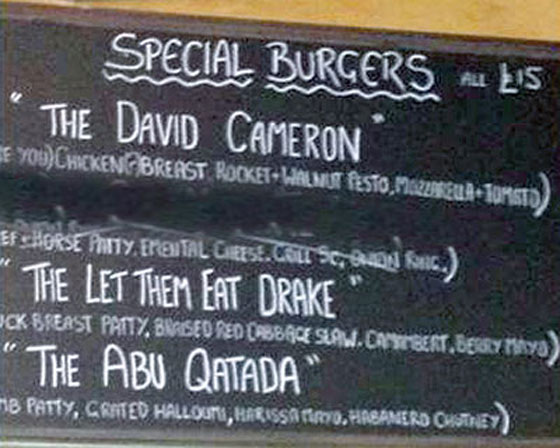 SPECIAL BURGERS ALL £15
"THE DAVID CAMERON"
RE YOU) CHICKEN(?)BREAST ROCKET+WALNUT PESTO, MOZZARELLA+TOMATO)
EF+HORSE PATTY, EMENTAL CHEESE, ONION RING.)
"THE LET THEM EAT DRAKE"
UCK BREAST PATTY, BRAISED RED CABBAGE SLAW, CAMEMBERT, BERRY MAYO)
"THE ABU QATADA"
MB PATTY, GRATED HALLOUMI, HARISSA MAYO, HABANERO CHUTNEY)